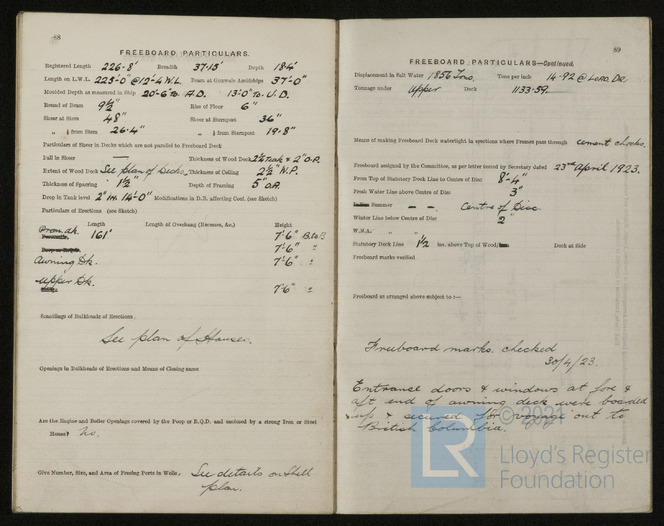 88
FREEBOARD PARTICULARS.
Registered Length 226·8' Breadth 37·13' Depth 18·4'
Length on L.W.L. 223'-0" @12'-4 W.L. Beam at Gunwale Amidships 37'-0"
Moulded Depth as measured in Ship 20'-6" to A.D. 13'-0" to U.D.
Round of Beam 9½" Rise of Floor 6"
Sheer at Stem 48" Sheer at Sternpost 36"
" ⅛ from Stem 26·4" " ⅛ from Sternpost 19·8"
Particulars of Sheer in Decks which are not parallel to Freeboard Deck
Fall in Sheer — Thickness of Wood Deck 2½ Teak & 2" O.P.
Extent of Wood Deck See plan of Decks. Thickness of Ceiling 2½" W.P.
Thickness of Sparring 1½" Depth of Framing 5" O.A.
Drop in Tank level 2" in 14'-0" Modifications in D.B. affecting Coef. (see Sketch)
Particulars of Erections (see Sketch)
Length Length of Overhang (Recesses, &c.) Height
Prom. dk. 161' 7'-6" B to B
7'-6" "
Awning Dk. 7'-6" "
Upper Dk.
7'-6" "
Scantlings of Bulkheads of Erections.
See plan of Houses.
Openings in Bulkheads of Erections and Means of Closing same
Are the Engine and Boiler Openings covered by the Poop or R.Q.D. and enclosed by a strong Iron or Steel
House? No.
Give Number, Size, and Area of Freeing Ports in Wells. See details on Shell
plan.
89
FREEBOARD PARTICULARS—Continued.
Displacement in Salt Water 1856 Tons. Tons per inch 14·92 @ Load Dr.
Tonnage under Upper Deck 1133·59.
Means of making Freeboard Deck watertight in erections where Frames pass through cement chocks.
Freeboard assigned by the Committee, as per letter issued by Secretary dated 23rd April 1923.
From Top of Statutory Deck Line to Centre of Disc 8'-4"
Fresh Water Line above Centre of Disc 3"
Summer — — Centre of Disc.
Winter Line below Centre of Disc 2"
W.N.A. " "
Statutory Deck Line 1½ ins. above Top of Wood Deck at Side
Freeboard marks verified
Freeboard as arranged above subject to:—
Freeboard marks checked
30/4/23.
Entrance doors & windows at fore &
aft end of awning deck were boarded
up & secured for voyage out to
British Columbia.
© 2021
LR
Lloyd's Register
Foundation